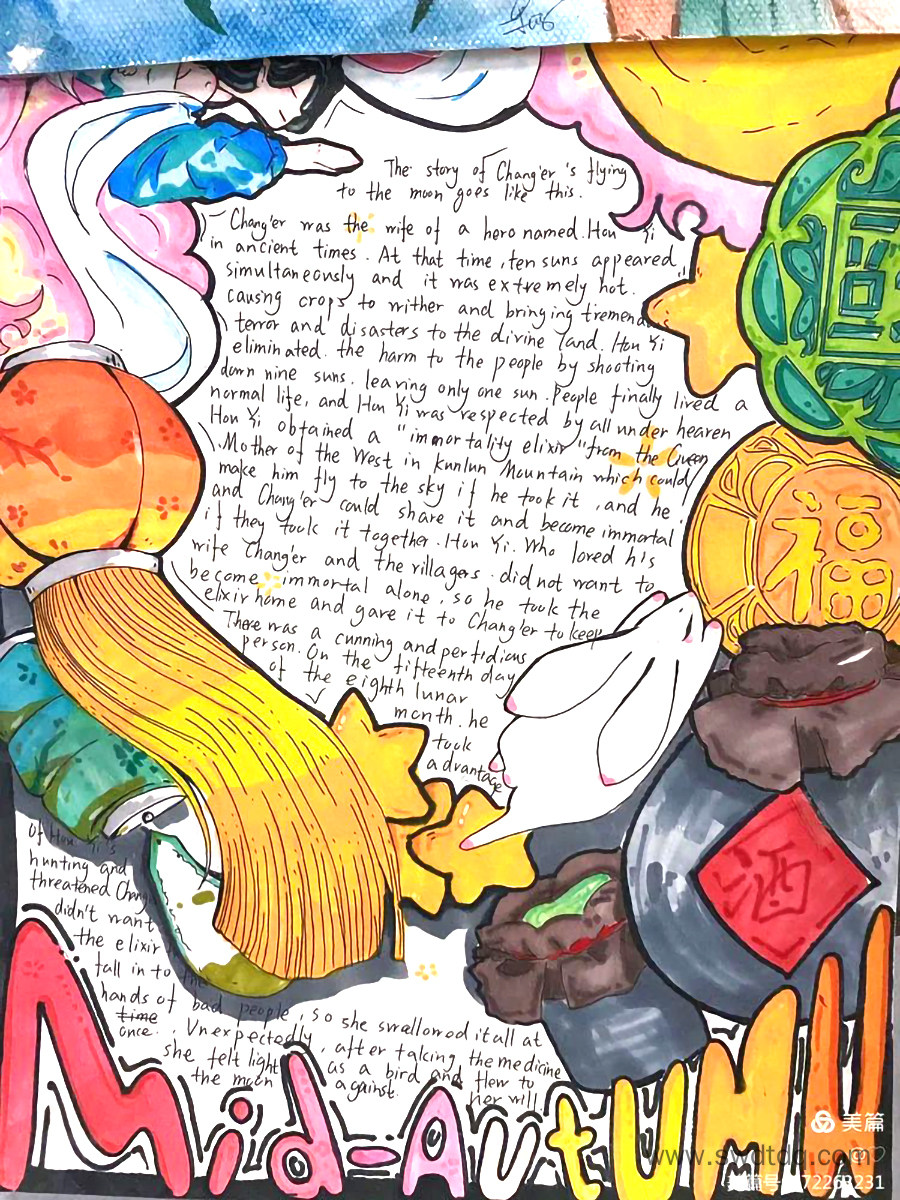 The story of Chang'er 's flying
to the moon goes like this.
Chang'er was the wife of a hero named. Hou Yi
in ancient times. At that time, ten suns appeared
simultaneously and it was extremely hot.
causing crops to wither and bringing
terror and disasters to the divine land. Hou Yi
eliminated. the harm to the people by shooting
down nine suns. leaving only one sun. People finally lived a
normal life, and Hou Yi was respected by all under heaven
Hou Yi obtained a "immortality elixir" from the Queen
Mother of the West in Kunlun Mountain which could
make him fly to the sky if he took it, and he
and Chang'er could share it and become immortal
if they took it together. Hou Yi. Who loved his
wife Chang'er and the villagers. did not want to
become immortal alone, so he took the
elixir home and gave it to Chang'er to keep
There was a cunning and perfidious
person. On the fifteenth day
of the eighth lunar
month. he
took
advantage
of Hou Yi's
hunting and
threatened
didn't want
the elixir
fall in to the
hands of bad people, so she swallowod it all at
time
once. Unexpectedly, after talking the medicine
she felt light as a bird and flew to
the moon against. her will.
福
酒
Mid-Autumn
美篇
www.swdtdq.com
72263231